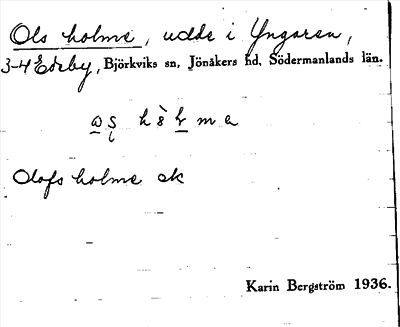 Ols holme, udde i Yngaren,
3-4 Edeby, Björkviks sn, Jönåkers hd, Södermanlands län.
Olofs holme ek
Karin Bergström 1936.